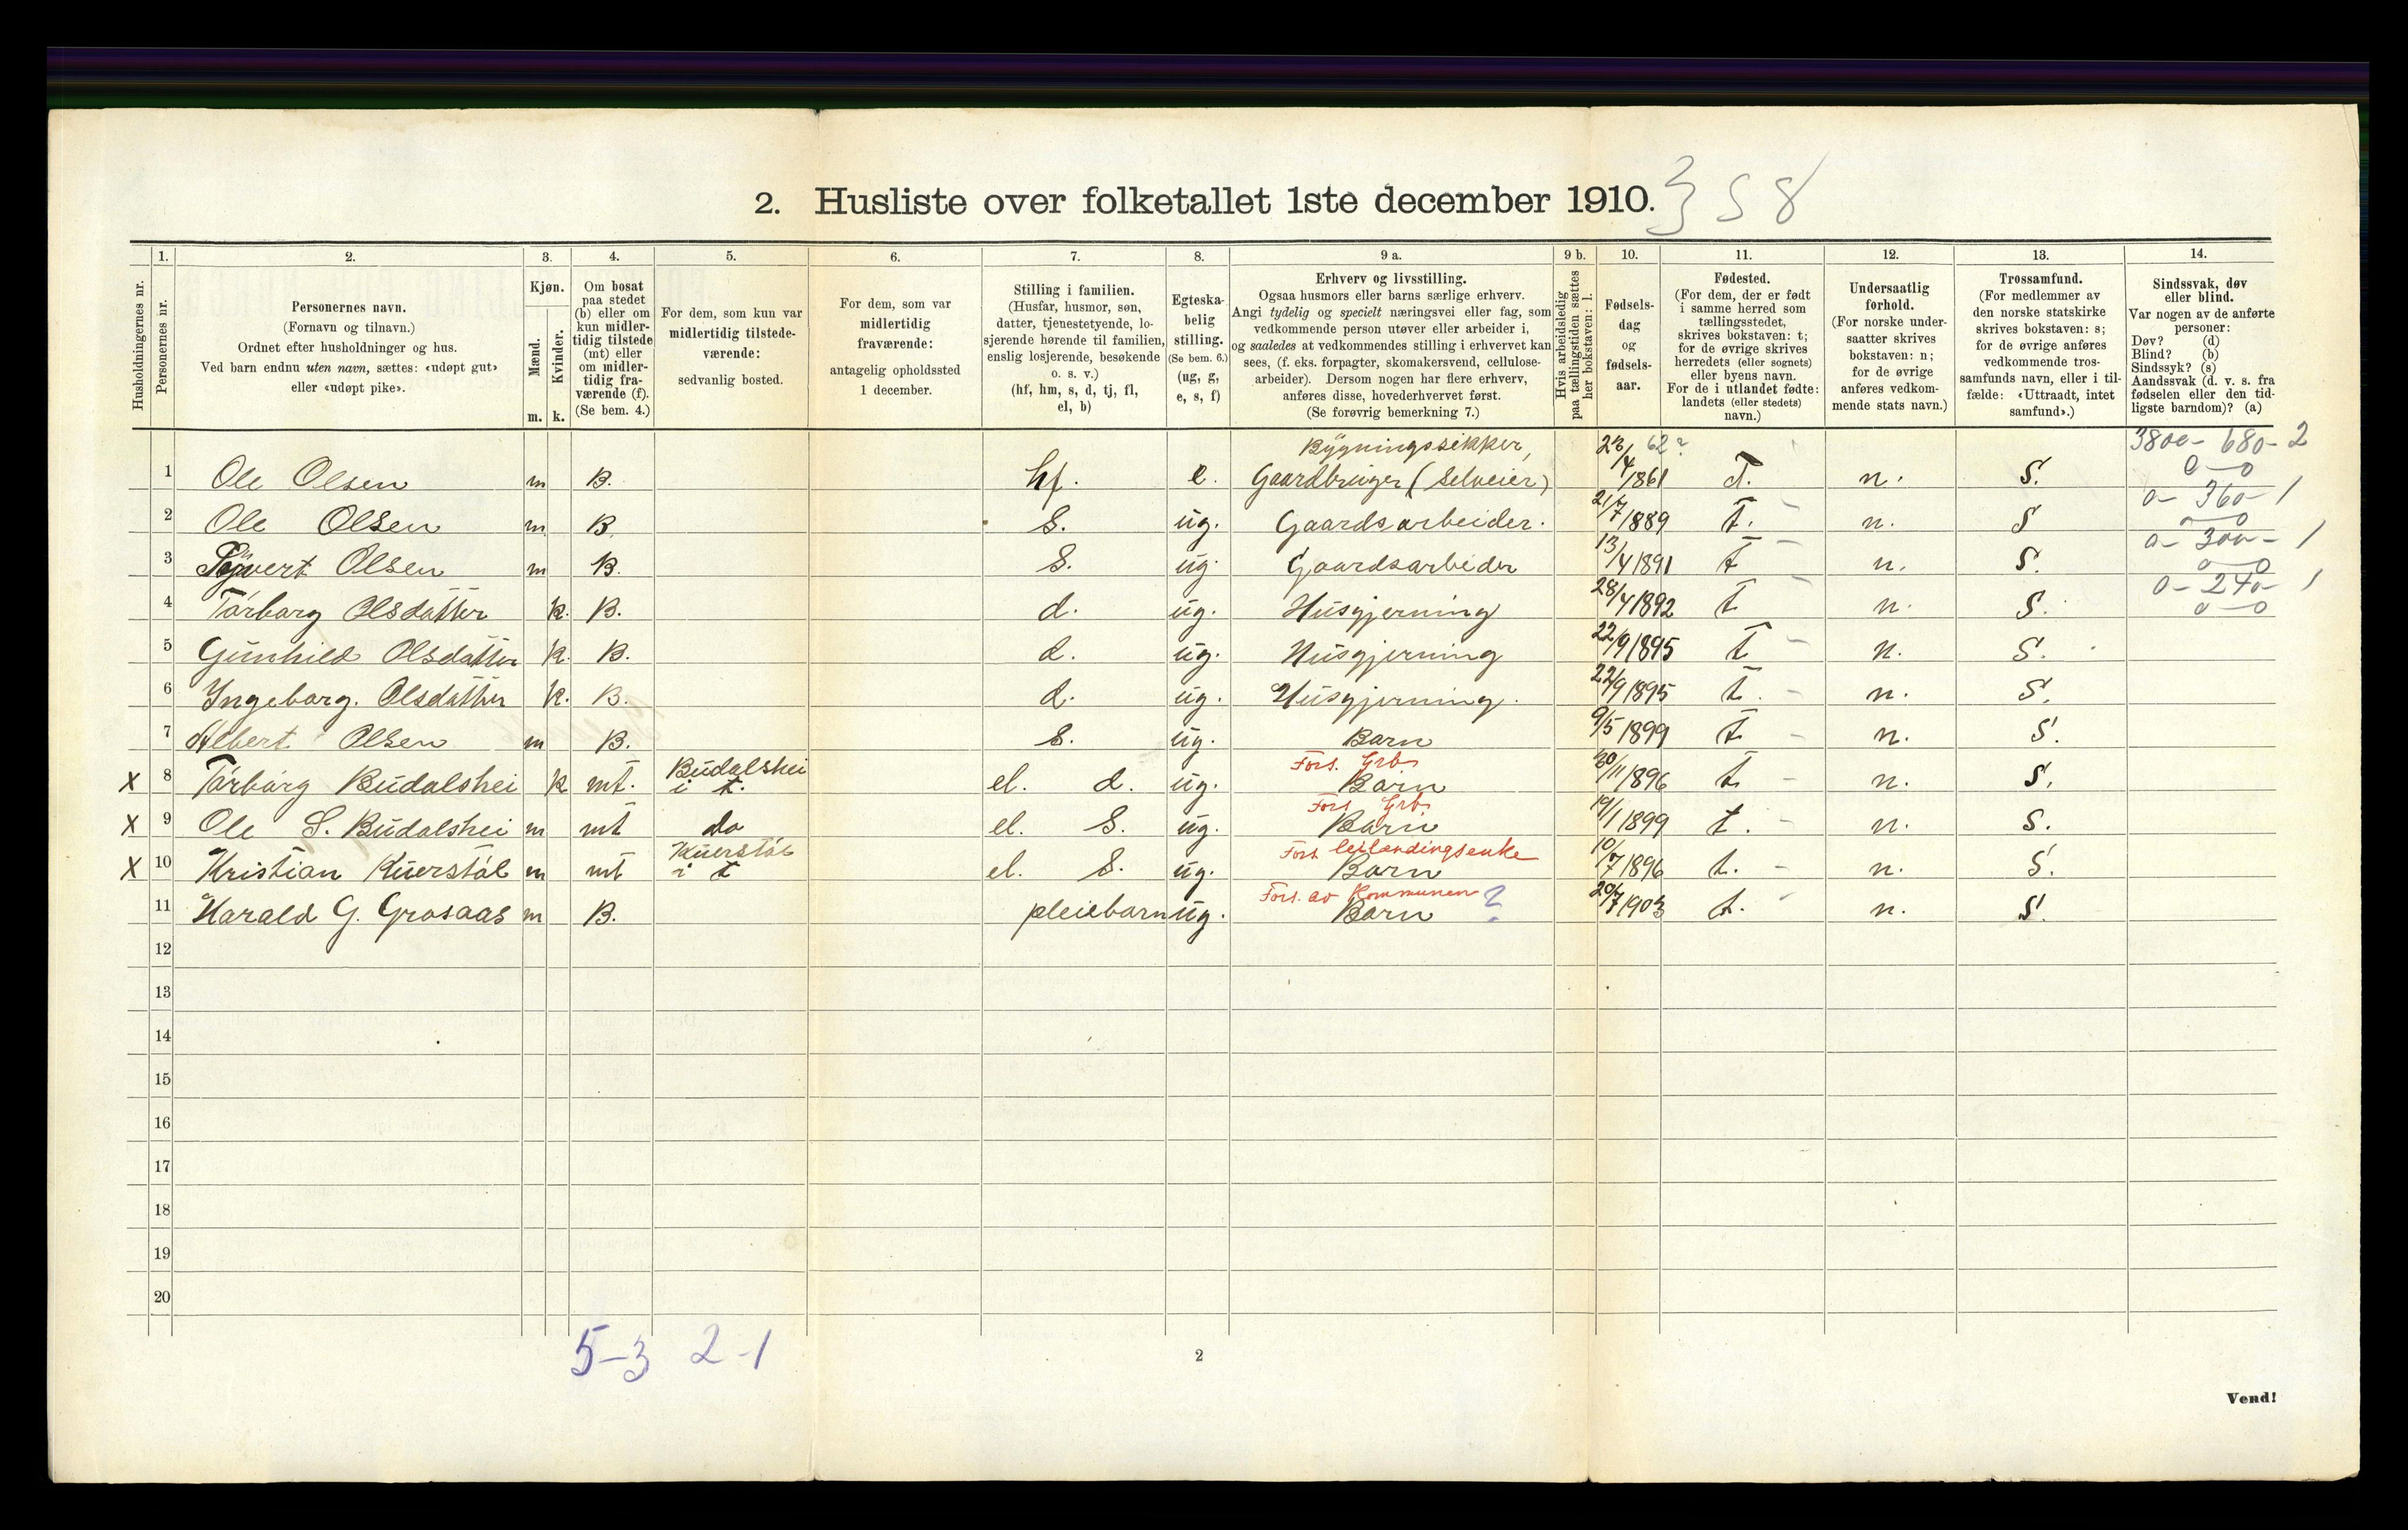 2. Husliste over folketallet 1ste december 1910. 3 58
Husholdningernes nr.
1.
Personernes nr.
2.
Personernes navn.
(Fornavn og tilnavn.)
Ordnet efter husholdninger og hus.
Ved barn endnu uten navn, sættes: «udøpt gut»
eller «udøpt pike».
3.
Kjøn.
Mænd.
m.
Kvinder.
k.
4.
Om bosat
paa stedet
(b) eller om
kun midler-
tidig tilstede
(mt) eller
om midler-
tidig fra-
værende (f).
(Se bem. 4.)
5.
For dem, som kun var
midlertidig tilstede-
værende:
sedvanlig bosted.
6.
For dem, som var
midlertidig
fraværende:
antagelig opholdssted
1 december.
7.
Stilling i familien.
(Husfar, husmor, søn,
datter, tjenestetyende, lo-
sjerende hørende til familien,
enslig losjerende, besøkende
o. s. v.)
(hf, hm, s, d, tj, fl,
el, b)
8.
Egteska-
belig
stilling.
(Se bem. 6.)
(ug, g,
e, s, f)
9 a.
Erhverv og livsstilling.
Ogsaa husmors eller barns særlige erhverv.
Angi tydelig og specielt næringsvei eller fag, som
vedkommende person utøver eller arbeider i,
og saaledes at vedkommendes stilling i erhvervet kan
sees, (f. eks. forpagter, skomakersvend, cellulose-
arbeider). Dersom nogen har flere erhverv,
anføres disse, hovederhvervet først.
(Se forøvrig bemerkning 7.)
9 b.
Hvis arbeidsledig
paa tællingstiden sættes
her bokstaven: l.
10.
Fødsels-
dag
og
fødsels-
aar.
11.
Fødested.
(For dem, der er født
i samme herred som
tællingsstedet,
skrives bokstaven: t;
for de øvrige skrives
herredets (eller sognets)
eller byens navn.
For de i utlandet fødte:
landets (eller stedets)
navn.)
12.
Undersaatlig
forhold.
(For norske under-
saatter skrives
bokstaven: n;
for de øvrige
anføres vedkom-
mende stats navn.)
13.
Trossamfund.
(For medlemmer av
den norske statskirke
skrives bokstaven: s;
for de øvrige anføres
vedkommende tros-
samfunds navn, eller i til-
fælde: «Uttraadt, intet
samfund».)
14.
Sindssvak, døv
eller blind.
Var nogen av de anførte
personer:
Døv? (d)
Blind? (b)
Sindssyk? (s)
Aandssvak (d. v. s. fra
fødselen eller den tid-
ligste barndom)? (a)
Bygningssikker, 62? 3800 - 680 - 2
1 Ole Olsen m B. hf. e. Gaardbruger (Selveier) 23/4 1861 T. n. S. 0-0
2 Ole Olsen m B. S. ug. Gaardsarbeider. 21/7 1889 T. n. S 0 - 360 - 1
0-0
3 Syvert Olsen m B. S. ug. Gaardsarbeider 13/4 1891 T n. S. 0 - 300 - 1
0-0
4 Tarbarg Olsdatter k. B. d. ug. Husgjerning 28/4 1892 t n. S. 0 - 240 - 1
0-0
5 Gunhild Olsdatter k. B. d. ug. Husgjerning 22/9 1895 t n. S.
6 Ingebarg. Olsdatter k. B. d. ug. Husgjerning. 22/9 1895 t. n. S.
7 Albert Olsen m B. S. ug. Barn 9/5 1899 t n. S.
Budalshei Fors. Grbr
x 8 Tarbarg Budalshei k mt. i t. el. d. ug. Barn 20/11 1896 t n. S.
Fors Grbr
x 9 Ole S. Budalshei m mt do el. S. ug. Barn 19/1 1899 t. n. S.
Kuerstøl Fors leilændingsenke
x 10 Kristian Kuerstøl m mt i t el. S. ug. Barn 10/7 1896 t. n. S.
Fors. av Kommunen ?
11 Harald G. Grosaas m B. pleiebarn ug. Barn 20/7 1903 t. n. S.
12
13
14
15
16
17
18
19
20
5-3 2-1
2
Vend!